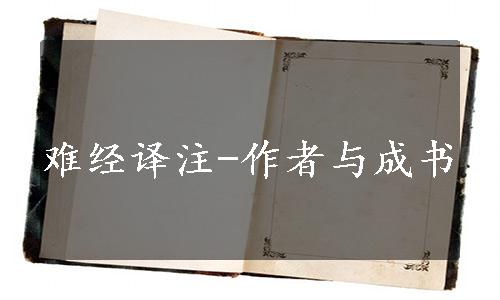 难经译注-作者与成书